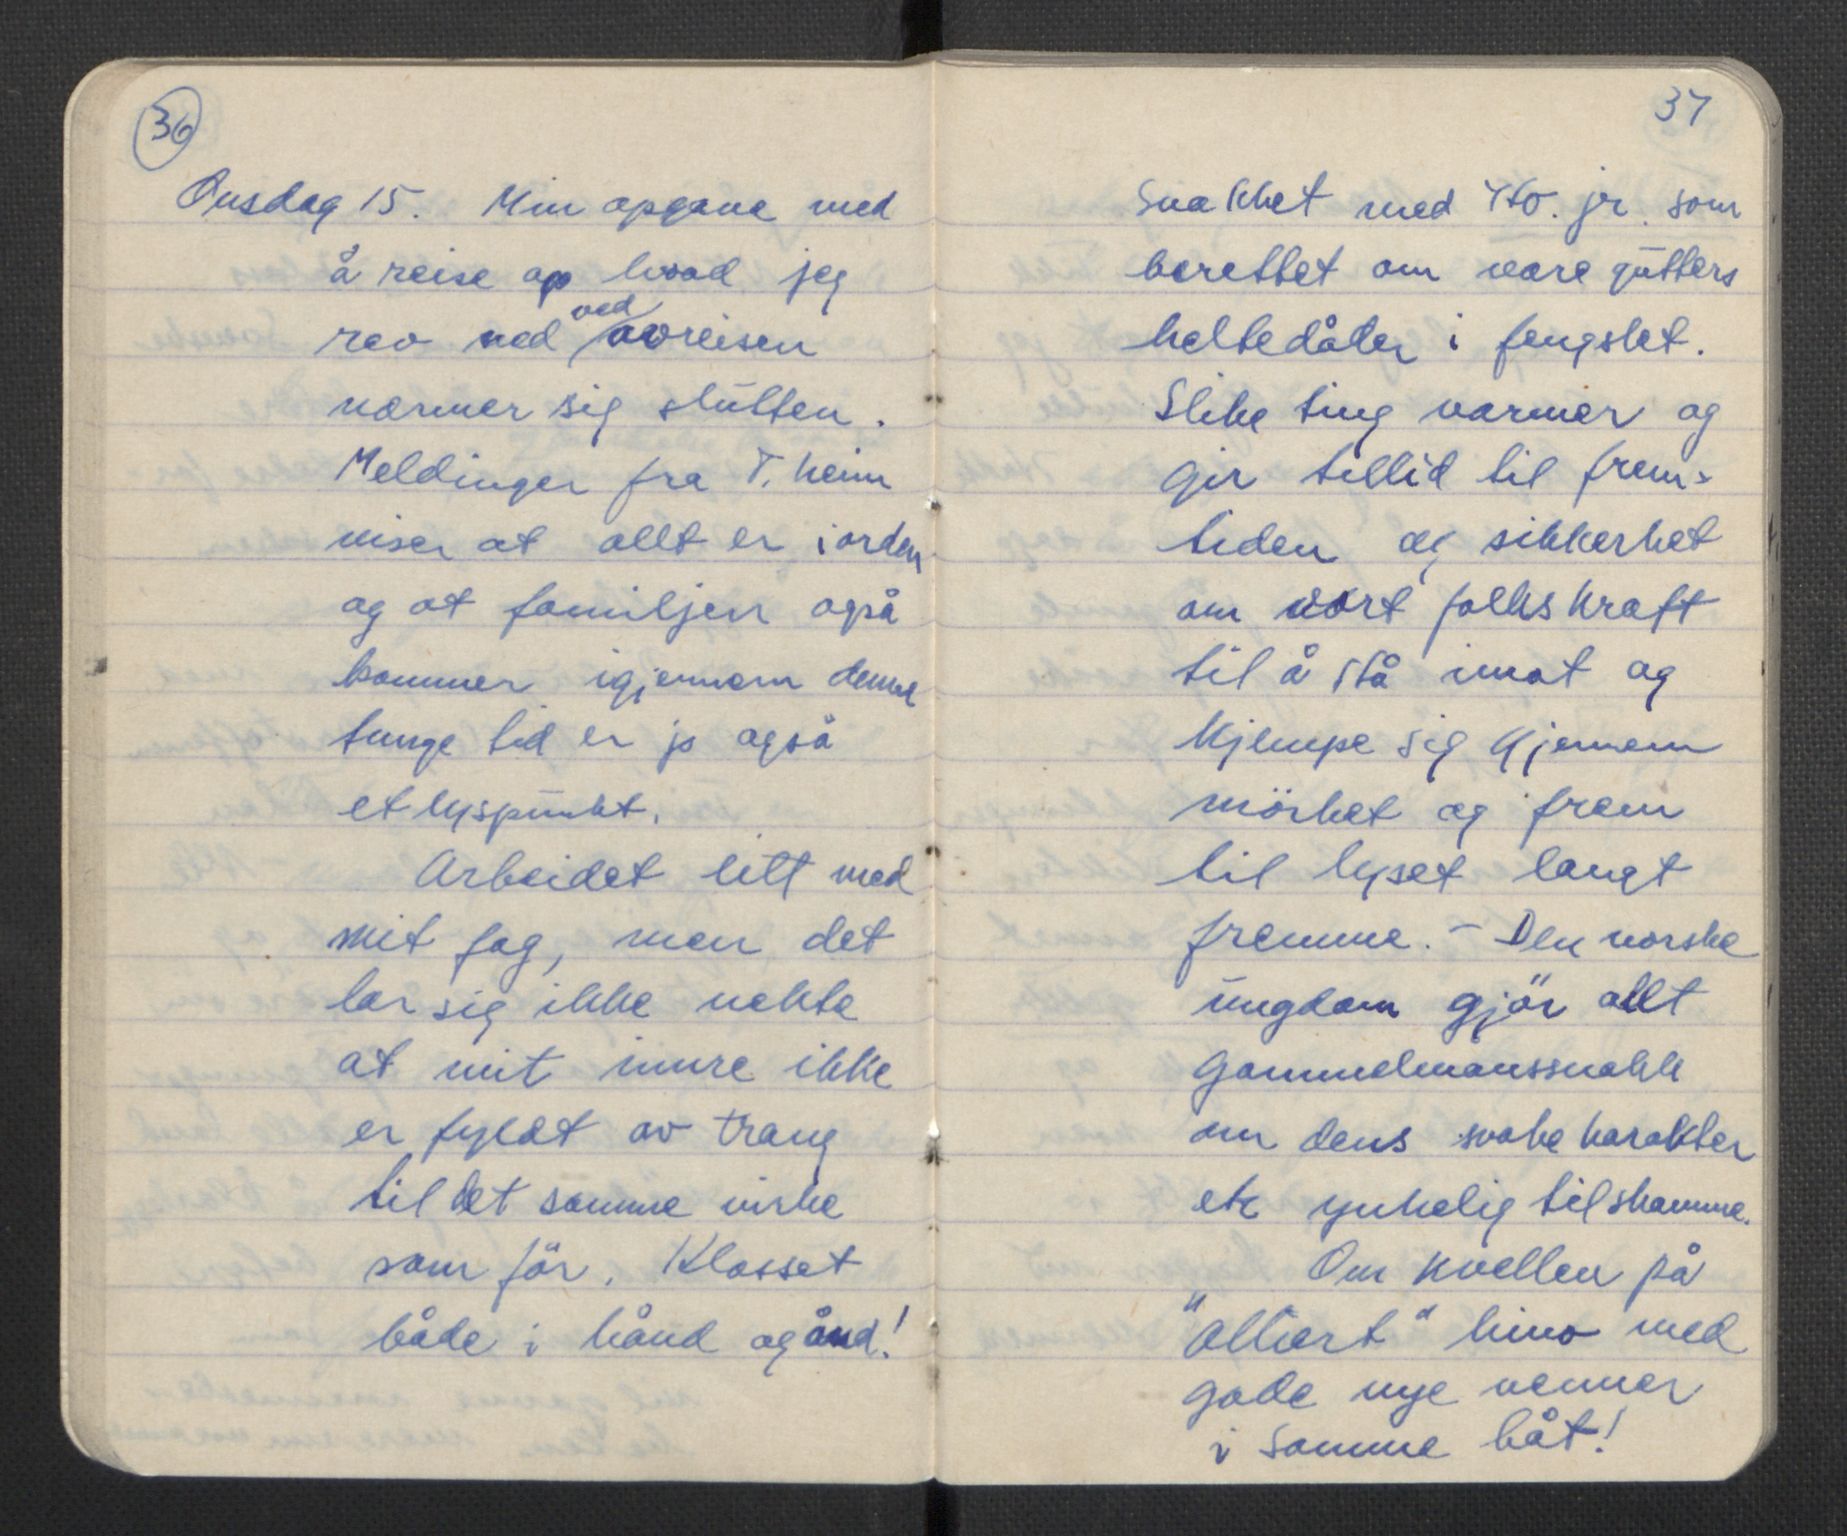 36
Onsdag 15. Min opgave med
å reise op hvad jeg
rev ned ved avreisen
nærmer sig slutten.
Meldinger fra T. heim
viser at allt er iorden
og at familjen også
kommer igjennem denne
tunge tid er jo også
et lyspunkt.
Arbeidet litt med
mit fag, men det
lar sig ikke nekte
at mit innre ikke
er fyldt av trang
til det samme virke
som før. Klosset
både i hånd og ånd!
37
Snakket med jr. som
berettet om våre gutters
heltedåder i fengslet.
Slike ting varmer og
gir tillid til frem-
tiden og sikkerhet
om vort folks kraft
til å stå imot og
kjempe sig gjennem
mörket og frem
til lyset langt
fremme. - Den norske
ungdom gjör allt
gammelmanssnakk
om dens svake karakter
etc ynkelig tilskamme.
Om kvellen på
"Atlart" kino med
gode nye venner
i samme båt!